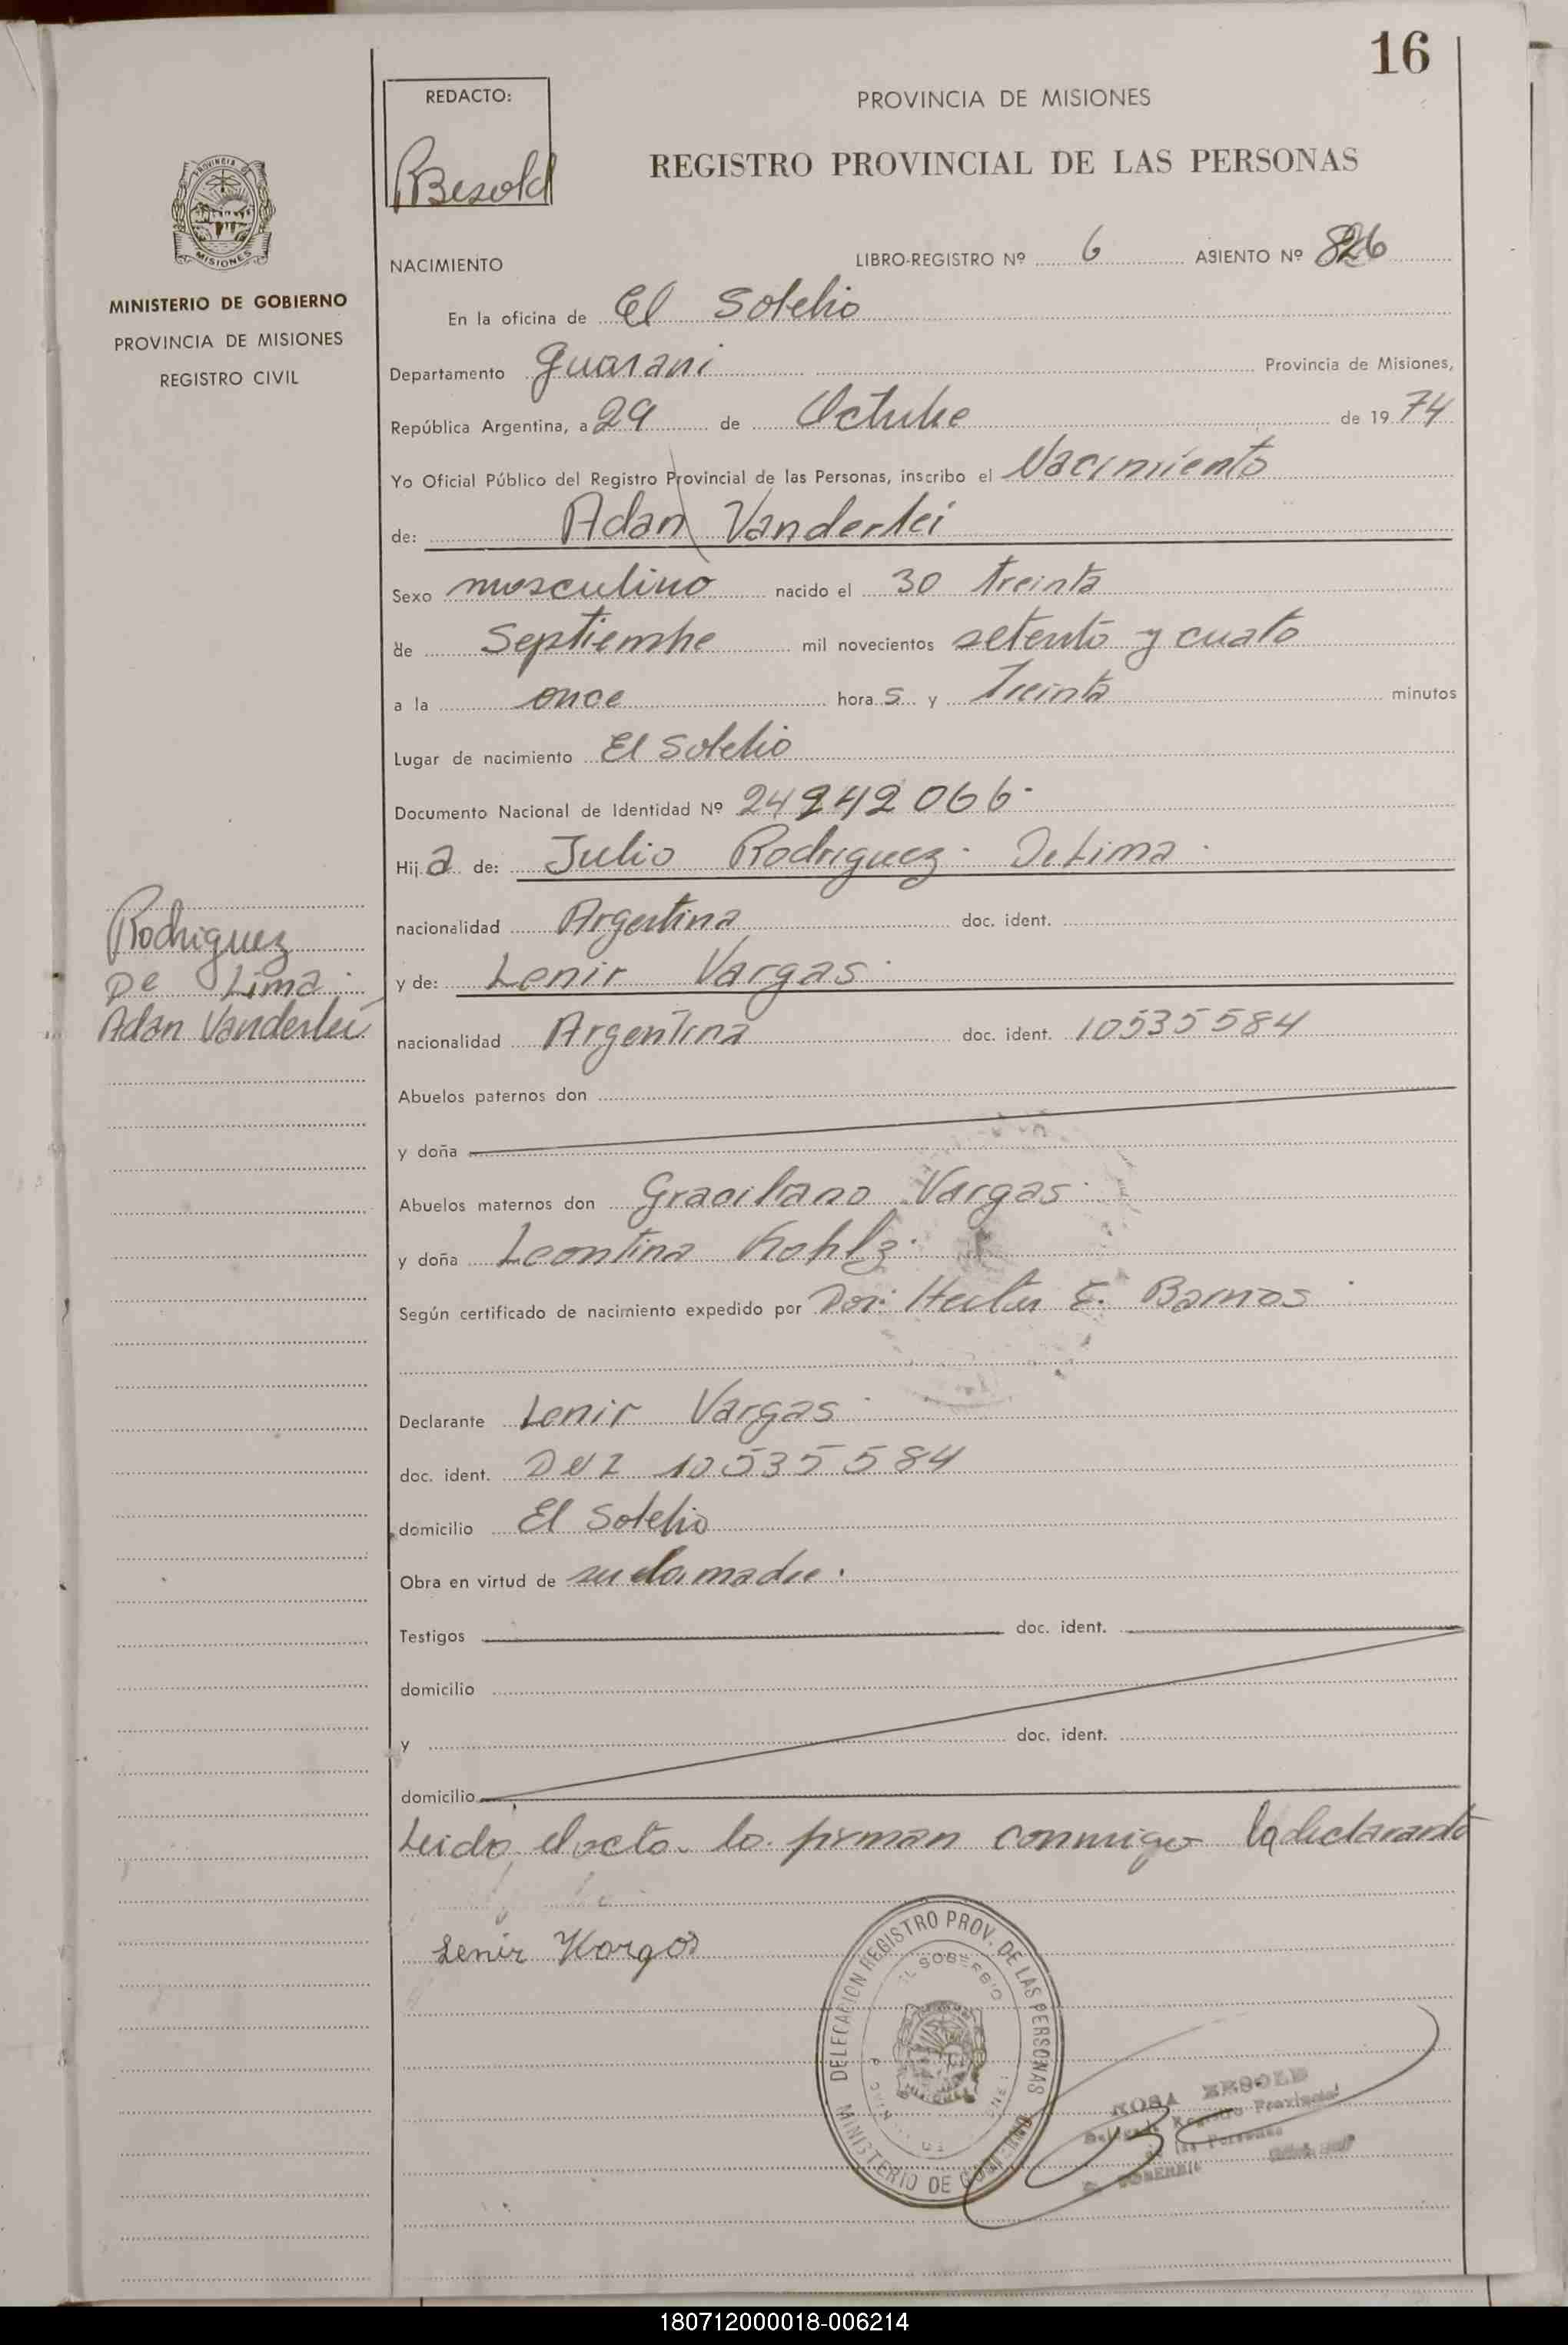 16
REDACTO:
PBesold
PROVINCIA DE MISIONES
REGISTRO PROVINCIAL DE LAS PERSONAS
PROVINCIA
MISIONES
MINISTERIO DE GOBIERNO
PROVINCIA DE MISIONES
REGISTRO CIVIL
NACIMIENTO LIBRO-REGISTRO Nº 6 ASIENTO Nº 826
En la oficina de El Sobebio
Departamento Guarani Provincia de Misiones,
República Argentina, a 29 de Octube de 19 74
Yo Oficial Público del Registro Provincial de las Personas, inscribo el Nacimiento
de: Adan Vanderlei
Sexo masculino nacido el 30 treinta
de Septiembe mil novecientos setenta y cuato
a la once hora s y Treinta minutos
Lugar de nacimiento El Sobebio
Documento Nacional de Identidad Nº 24242066
Hij a de: Julio Rodriguez De Lima
nacionalidad Argentina doc. ident.
y de: Lenir Vargas
nacionalidad Argentina doc. ident. 10535584
Rodriguez
De Lima
Adan Vanderlei
Abuelos paternos don
y doña
Abuelos maternos don Graciliano Vargas
y doña Leontina Kohlz
Según certificado de nacimiento expedido por Dor: Hector E. Barrios
Declarante Lenir Vargas
doc. ident. DNI 10535584
domicilio El Sobebio
Obra en virtud de ser la madre.
Testigos doc. ident.
domicilio
y doc. ident.
domicilio
Leido el acta lo firman conmigo la declarante
Lenir Vargas
DELEGACION REGISTRO PROV. DE LAS PERSONAS
EL SOBERBIO
MINISTERIO DE GOBIERNO
ROSA BESOLD
Delegada Registro Provincial
de las Personas
EL SOBERBIO
180712000018-006214